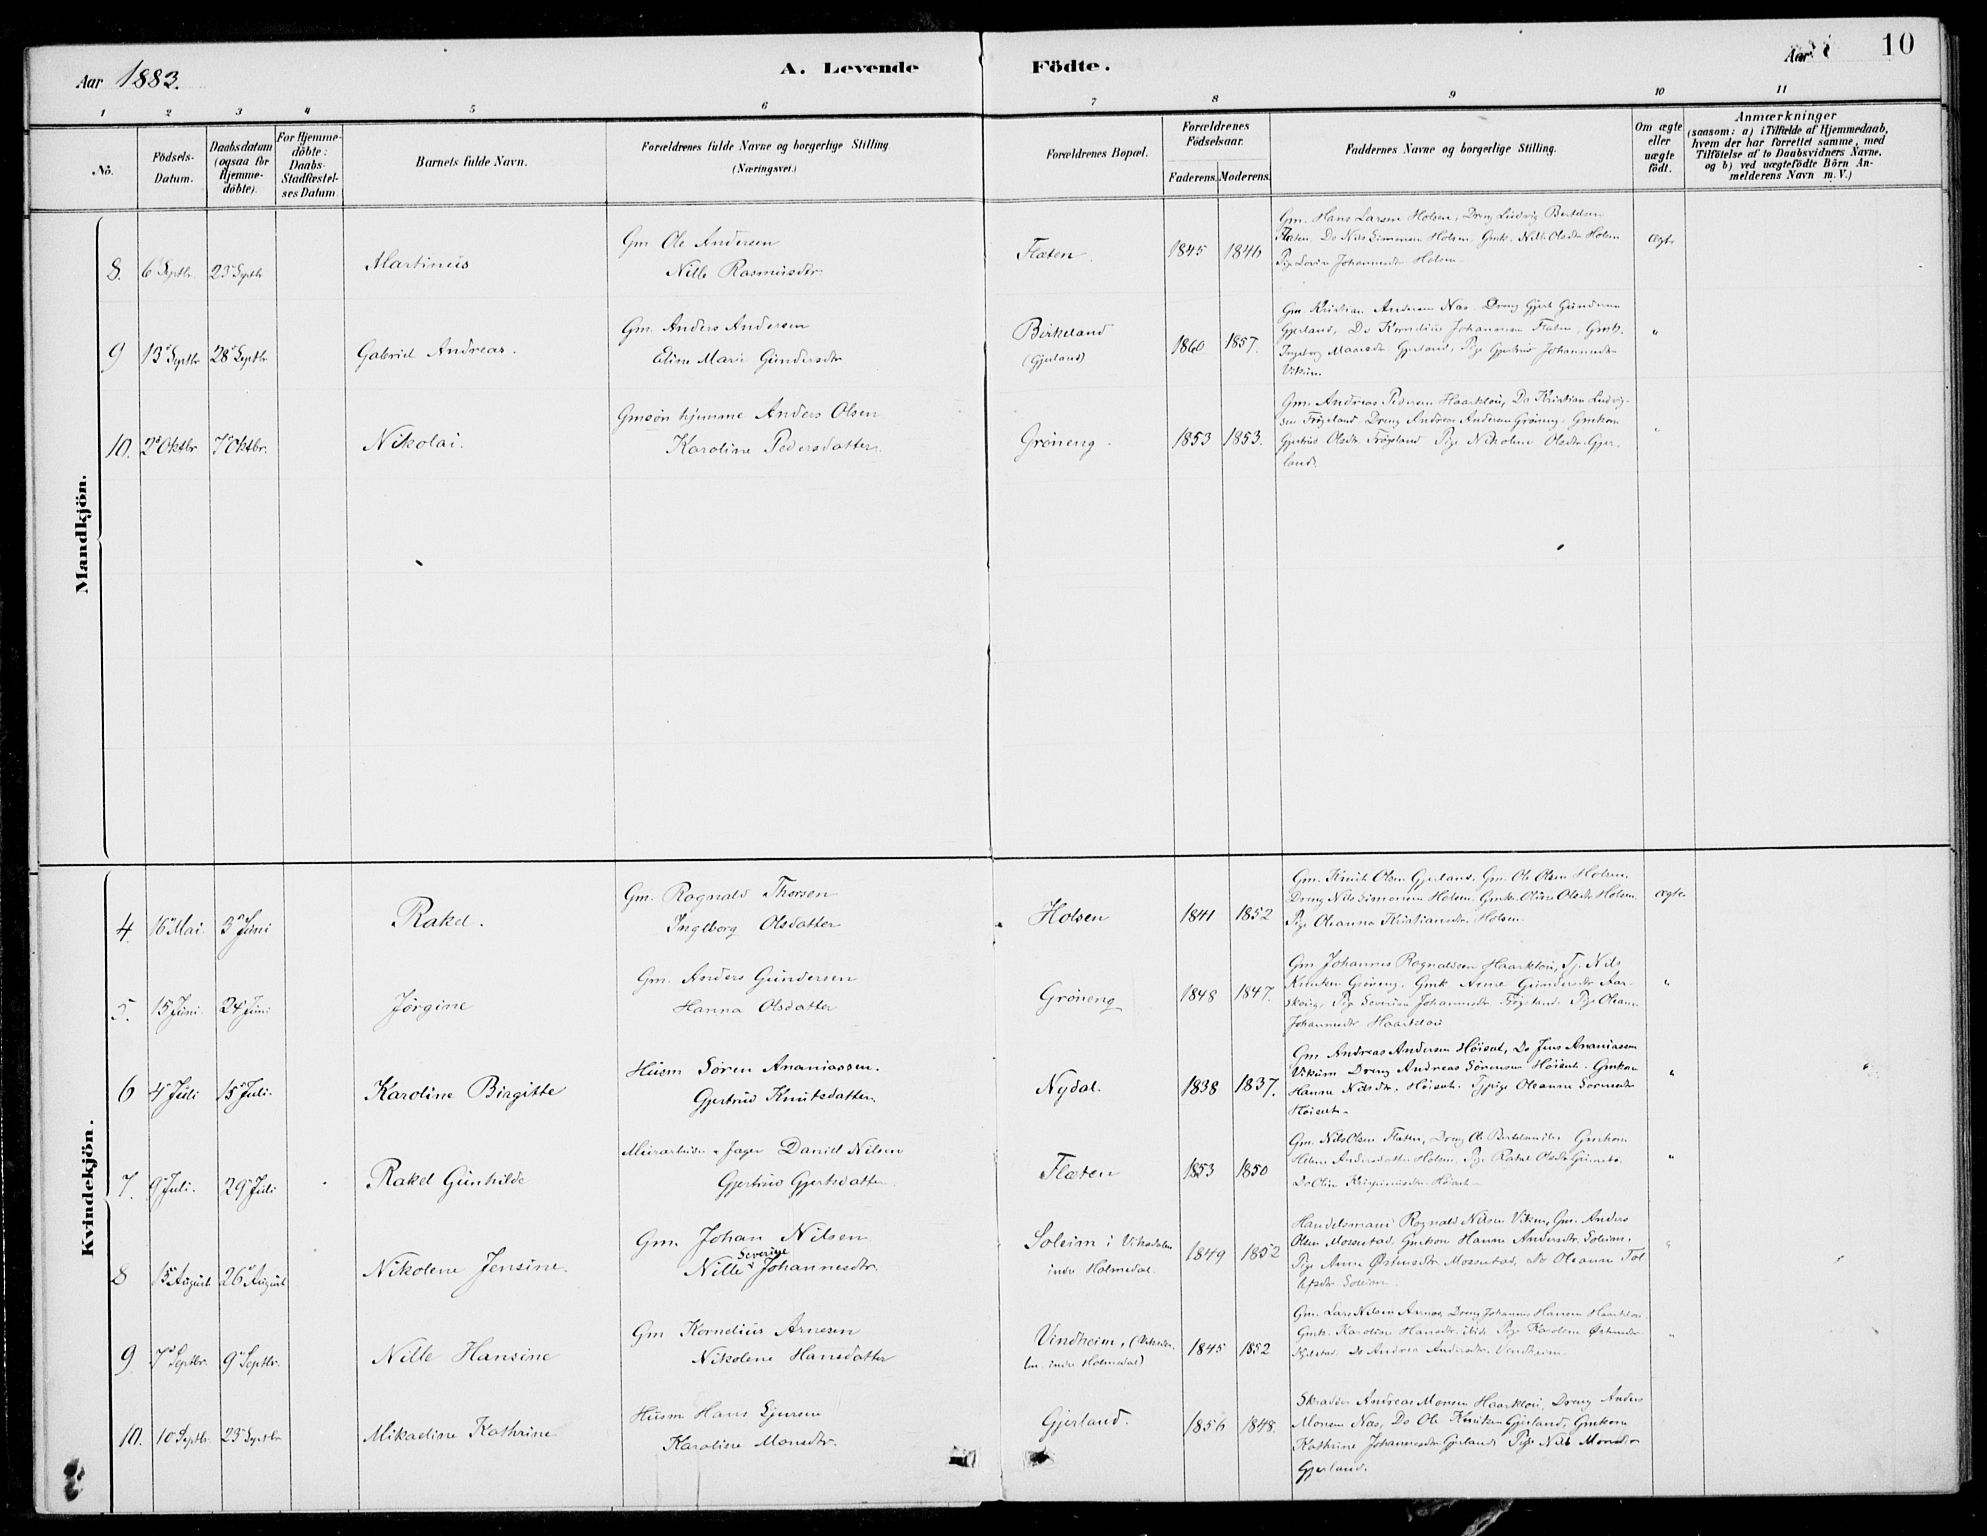 Aar 1883.
A. Levende Födte.
Aar
10
1 2 3 4 5 6 7 8 9 10 11
No.
Födsels-Datum.
Daabsdatum (ogsaa for Hjemme-döbte).
For Hjemme-döbte: Daabs-Stadfæstel-ses Datum.
Barnets fulde Navn.
Forældrenes fulde Navne og borgerlige Stilling
(Næringsvei.)
Forældrenes Bopæl.
Forældrenes Födselsaar.
Faderens. Moderens.
Faddernes Navne og borgerlige Stilling.
Om ægte eller uægte födt.
Anmærkninger
(saasom: a) i Tilfælde af Hjemmedaab,
hvem der har forrettet samme, med
Tilföielse af to Daabsvidners Navne,
og b) ved uægtefödte Börn An-
melderens Navn m.V.)
Mandkjön.
8. 6 Septbr. 23 Septbr Martinus
Gm Ole Andersen
Nille Rasmusdtr
Flaten. 1845 1846
Gm. Hans Larsen Holsen, Dreng Ludvig Bertelsen
Flaten, Do Nils Simonsen Holsen, Gmk. Nille Olsdtr Holsen
Pige Lovise Johannesdtr Holsen
ægte
9 13 Septbr 28 Septbr Gabriel Andreas.
Gm. Anders Andersen
Eline Marie Gundersdtr
Birkeland
(Gjerland)
1860 1857.
Gm. Kristian Andersen Nas. Dreng Gjert Gundersen
Gjerland, Do Kornelius Johannesen Flaten, Gmk.
Ingeborg Gjerland, Pige Gjertrud Johannesdtr
Vikum
"
10. 2 Oktbr 7 Oktbr. Nikolai.
Gmsøn hjemme Anders Olsen
Karoline Pedersdatter
Grøneng. 1853 1853.
Gm. Andreas Pedersen Haarklou, Do Kristian Ludvig-
sen Frøysland Dreng Andreas Andersen Grøneng, Gmkon
Gjertrud Olsdtr. Frøysland Pige Nikoline Olsdtr. Gjer-
land.
"
Kvindekjön.
4. 16 Mai 3 Juni Rakel.
Gm. Ragnald Thorsen
Ingeborg Olsdatter
Holsen 1841 1852
Gm. Knut Olsen Gjerland, Gm. Ole Olsen Holsen,
Dreng Nils Simonsen Holsen Gmk. Oline Olsdtr Holsen
Pige Oleanna Kristiansdtr. Holsen
ægte
5. 15 Juni 24 Juni Jørgine
Gm. Anders Gundersen
Hanna Olsdatter
Grøneng 1848 1847.
Gm Johannes Ragnaldsen Haarklou, Tj. Nils
Knutsen Grøneng, Gmk Anne Gundersdtr Aar-
skoug, Pige Severine Johannesdtr Frøysland. Pige Oleane
Johannesdtr Haarklou
"
6 4 Juli 15 Juli. Karoline Birgitte
Husm Søren Ananiassen.
Gjertrud Knutsdatter.
Nydal. 1838 1837.
Gm Andreas Andersen Høiset, Do Jens Ananiassen
Vikum Dreng Andreas Sørensen Høiset Gmkon
Hanne Nilsdtr. Høiset. Tjpige Oleanne Sørensdtr
Høiset
"
7. 9 Juli. 29 Juli Rakel Gunhilde
Murarbeider & Jæger Daniel Nilsen
Gjertrud Gjertsdatter.
Flaten 1853 1850
Gm. Nils Olsen Flaten, Dreng Ole Bertelsen Gmkon
Helene Andersdatter Holsen, Pige Rakel Olsdtr
Do Oline Høiset
"
8 15 August 26 August Nikolene Jensine.
Gm. Johan Nilsen
Severine
Nille Johannesdtr.
Soleim i Viksdalen
indre Holmedal.
1849 1852
Handelsmand Ragnald Nilsen Vikum, Gm. Anders
Olsen Mossestad, Gmkon Hanne Andersdtr Soleim,
Pige Anne Østensdtr. Mossestad, Do Oleanne Tol
lefsdtr. Soleim.
"
9. 7 Septbr. 9 Septbr. Nille Hansine
Gm Kornelius Arnesen
Nikolene Hansdatter
Vindheim, (Viksda-
len, indre Holmedal)
1845 1852
Gm. Lars Nilsen Dreng Johannes Hansen Haarklou
Gmk. Karoline Hansdtr ibid Pige Karolene Østensdtr
Do Andrea Andersdtr. Vindheim
"
10. 10 Septbr 23 Septbr Mikaeline Kathrine
Husm Hans
Karoline Monsdtr.
Gjerland. 1856 1848.
Skradder Andreas Monsen Haarklou, Dreng Anders
Monsen Nas, Do Ole Knutsen Gjerland, Gmkone
Kathrine Johannesdtr Gjerland Pige Nille Monsdtr
Gjerland.